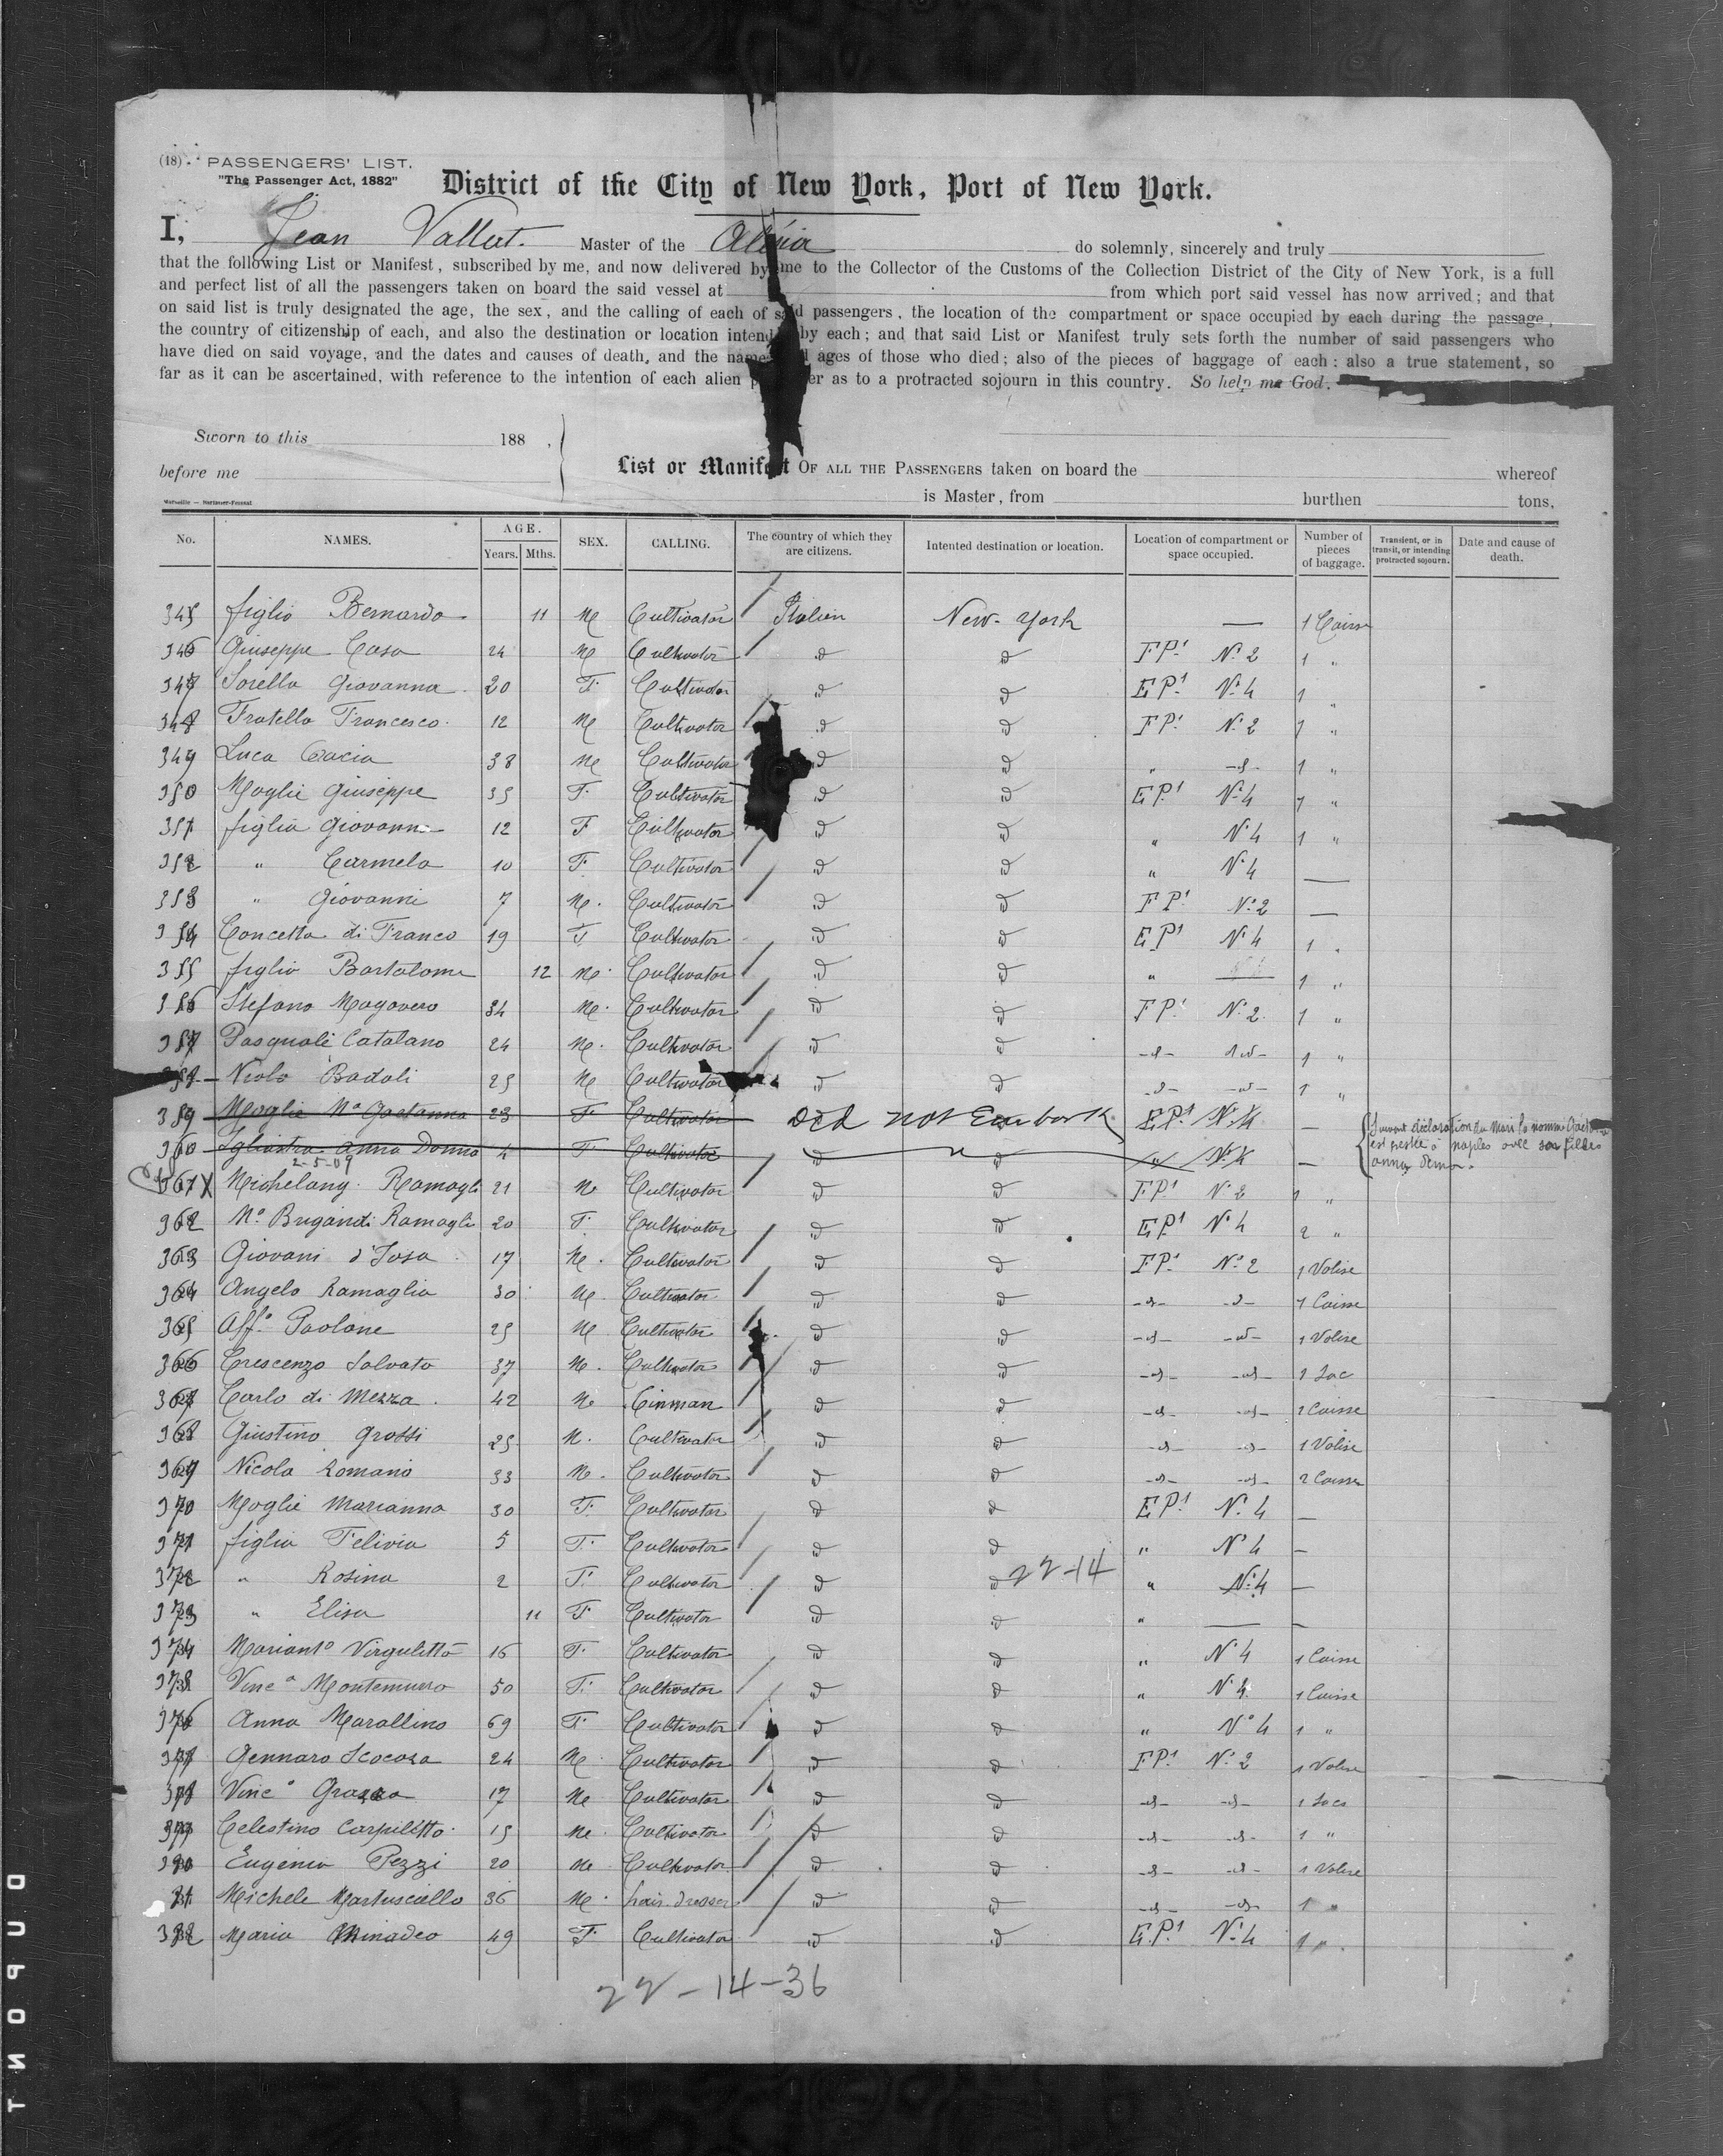 (18) PASSENGERS' LIST.
"The Passenger Act, 1882"
District of the City of New York, Port of New York.
I, Jean Vallat. Master of the Alesia do solemnly, sincerely and truly
that the following List or Manifest, subscribed by me, and now delivered by me to the Collector of the Customs of the Collection District of the City of New York, is a full
and perfect list of all the passengers taken on board the said vessel at from which port said vessel has now arrived; and that
on said list is truly designated the age, the sex, and the calling of each of said passengers, the location of the compartment or space occupied by each during the passage,
the country of citizenship of each, and also the destination or location intend by each; and that said List or Manifest truly sets forth the number of said passengers who
have died on said voyage, and the dates and causes of death, and the names ages of those who died; also of the pieces of baggage of each: also a true statement, so
far as it can be ascertained, with reference to the intention of each alien p er as to a protracted sojourn in this country. So help me God.
Sworn to this 188 ,
before me
List or Manifest OF ALL THE PASSENGERS taken on board the whereof
is Master, from burthen tons,
No. NAMES. AGE. Years. Mths. SEX. CALLING. The country of which they are citizens. Intented destination or location. Location of compartment or space occupied. Number of pieces of baggage. Transient, or in transit, or intending protracted sojourn. Date and cause of death.
345 figlio Bernardo 11 M Cultivator Italien New-York — 1 Caisse
346 Giuseppe Casa 24 M Cultivator d d FP.t N.2 1 "
347 Sorella Giovanna 20 F Cultivator d d EP.t N.4 1 "
348 Fratello Francesco 12 M Cultivator d d FP.t N.2 1 "
349 Luca Cacia 38 M Cultivator d d " -d- 1 "
350 Moglie Giuseppe 35 F Cultivator d d EP.t N.4 1 "
351 figlia Giovanna 12 F Cultivator d d " N.4 1 "
352 " Carmela 10 F Cultivator d d " N.4 —
353 " Giovanni 7 M Cultivator d d FP.t N.2 —
354 Concetta di Franco 19 F Cultivator d d EP.t N.4 1 "
355 figlio Bartolome 12 M Cultivator d d " — 1 "
356 Stefano Magavero 34 M Cultivator d d FP.t N.2 1 "
357 Pasquale Catalano 24 M Cultivator d d -d- -d- 1 "
358 Nicola Badali 25 M Cultivator d d -d- -d- 1 "
359 Moglie Mª Gaetanna 23 F Cultivator Did not Embark EP.t N.4 —
360 Anna Donna 4 F Cultivator d d " N.4 —
Suivant déclaration du Mari la nommé
est restée à Naples avec sa fille
anna
2-5-09
361 X Michelang. Ramagli 21 M Cultivator d d FP.t N.2 1 "
362 Mª Brigandi Ramagli 20 F Cultivator d d EP.t N.4 2 "
363 Giovani d'Iosa 17 M Cultivator d d FP.t N.2 1 Valise
364 Angelo Ramaglia 30 M Cultivator d d -d- -d- 1 Caisse
365 Aff.º Paolone 25 M Cultivator d d -d- -d- 1 Valise
366 Crescenzo Salvato 37 M Cultivator d d -d- -d- 1 Sac
367 Carlo di Mezza 42 M Tinman d d -d- -d- 2 Caisse
368 Giustino Grossi 25 M Cultivator d d -d- -d- 1 Valise
369 Nicola Romano 33 M Cultivator d d -d- -d- 2 Caisse
370 Moglie Marianna 30 F Cultivator d d EP.t N.4 —
371 figlia Felivia 5 F Cultivator d d " N.4 —
372 " Rosina 2 F Cultivator d d 22-14 " N.4 —
373 " Elisa 11 F Cultivator d d " — —
374 Mariantª Virgulitta 16 F Cultivator d d " N.4 1 Caisse
375 Vincª Montemurro 50 F Cultivator d d " N.4 1 Caisse
376 Anna Marallino 69 F Cultivator d d " N.4 1 "
377 Gennaro Scocosa 24 M Cultivator d d FP.t N.2 1 Valise
378 Vincº Grazza 17 M Cultivator d d -d- -d- 1 Sacs
379 Celestino Carpilitto 15 M Cultivator d d -d- -d- 1 "
380 Eugenio Pezzi 20 M Cultivator d d -d- -d- 1 Valise
81 Michele Martusciello 36 M hair-dresser d d -d- -d- 1 "
382 Maria Minadeo 49 F Cultivator d d EP.t N.4 1 "
22-14-36
DUPONT